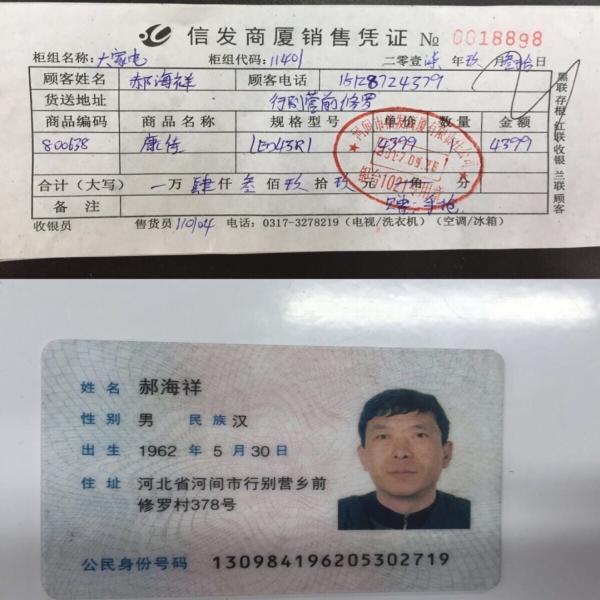 信发商厦销售凭证 № 0018898
柜组名称:大家电 柜组代码:11401 二零壹柒年玖月叁拾日
顾客姓名 郝海祥 顾客电话 15128724379
货送地址 行别营前修罗
商品编码 商品名称 规格型号 单价 数量 金额
800638 康佳 LED43R1 4399 1 4399
合计(大写) 一万肆仟叁佰玖拾玖元一角 分
备注
收银员 售货员 11404 电话:0317-3278219(电视/洗衣机)(空调/冰箱)
黑联存根 红联收银 兰联顾客
姓名 郝海祥
性别 男 民族 汉
出生 1962 年 5 月 30 日
住址 河北省河间市行别营乡前
修罗村378号
公民身份号码 130984196205302719